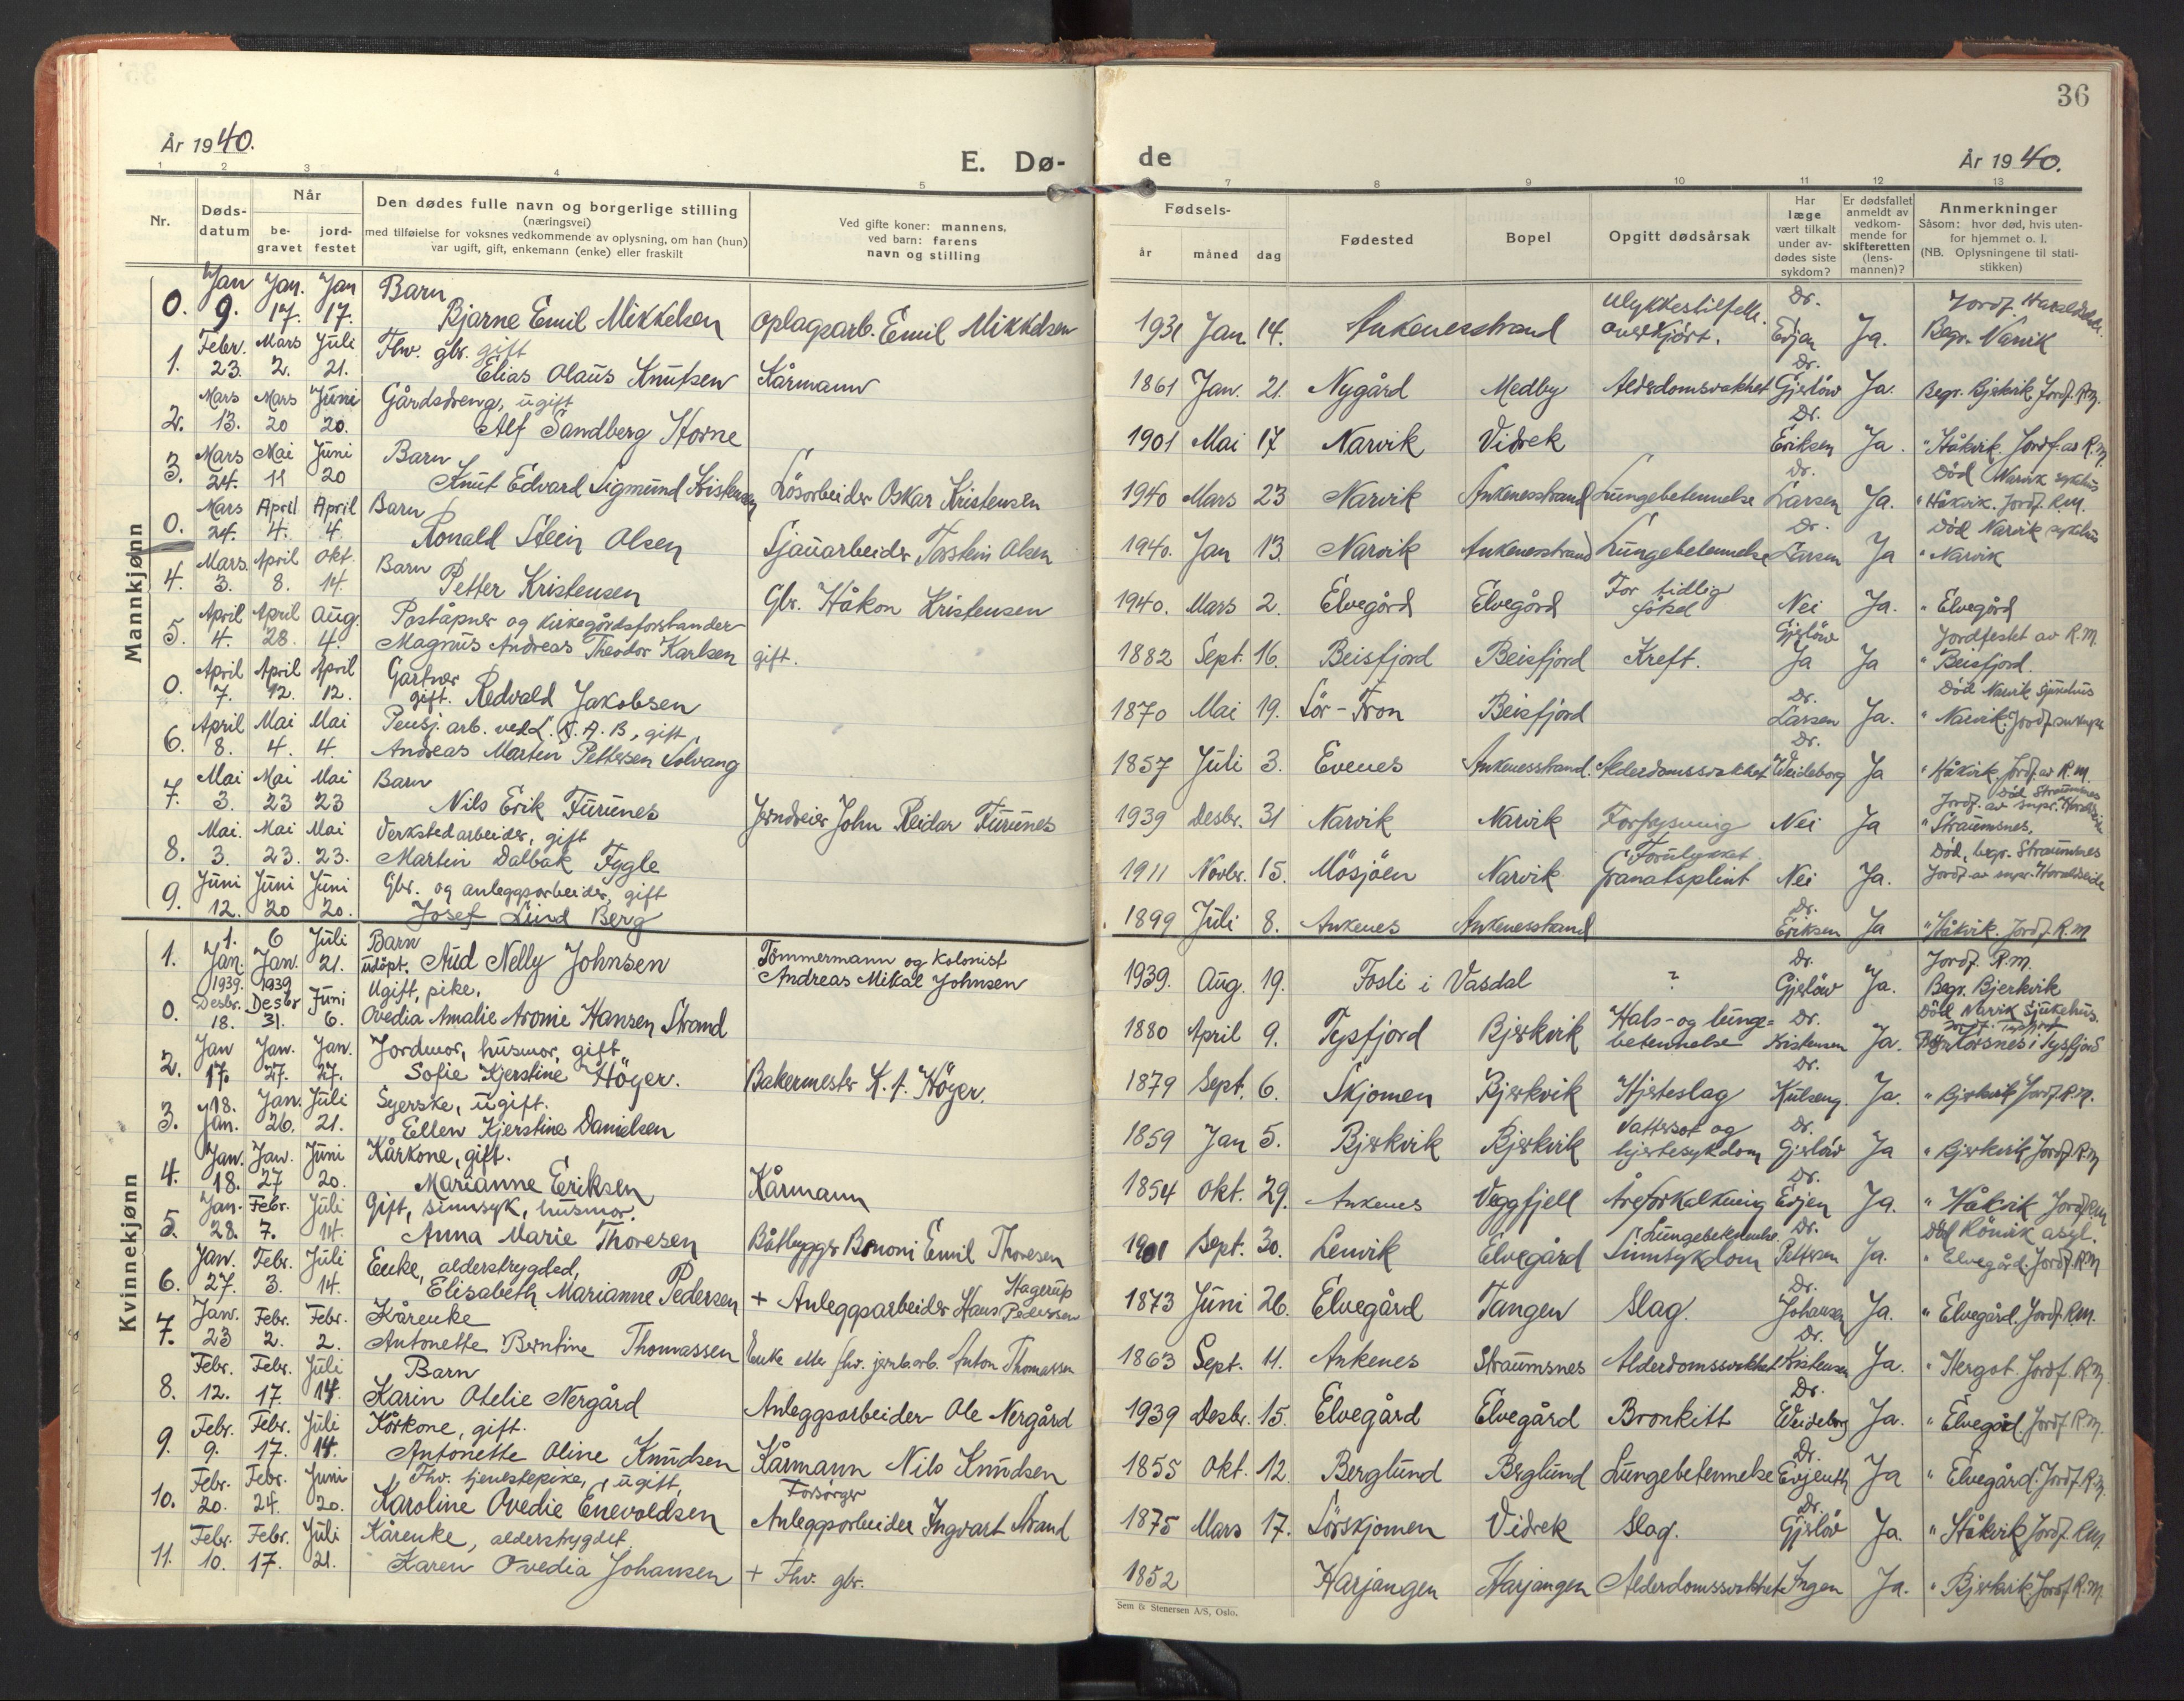 36
År 1940.
E. Dø-
de
År 1940.
1 2 3 4 5
7 8 9 10 11 12 13
Nr.
Døds-
datum
Når
be-
gravet
jord-
festet
Den dødes fulle navn og borgerlige stilling
(næringsvei)
med tilføielse for voksnes vedkommende av oplysning, om han (hun)
var ugift, gift, enkemann (enke) eller fraskilt
Ved gifte koner: mannens,
ved barn: farens
navn og stilling
Fødsels-
år måned dag
Fødested
Bopel
Opgitt dødsårsak
Har
læge
vært tilkalt
under av-
dødes siste
sykdom?
Er dødsfallet
anmeldt av
vedkom-
mende for
skifteretten
(lens-
mannen)?
Anmerkninger
Såsom: hvor død, hvis uten-
for hjemmet o. l.
(NB. Oplysningene til stati-
stikken)
Mannkjønn
Jan Jan. Jan Barn
0. 9. 17. 17. Bjarne Emil Mikkelsen oplagsarb. Emil Mikkelsen
1931 Jan. 14. Ankenesstrand Ulykkestilfelle. overkjört. Dr. Ja. Begr. Narvik
Febr. Mars Juli Fhv. gbr. gift
1. 23. 2. 21. Elias Olaus Knutsen Kårmann
1861 Jan. 21. Nygård Medby Alderdomssvakhet Dr. Gjerlöw Ja. Begr. Bjerkvik Jordf. R.M.
Mars Mars Juni Gårdsdreng, ugift
2. 13. 20 20. Alf Sandberg Horne
1901 Mai 17 Narvik Vidrek Dr. Eriksen Ja. " Håkvik Jordf. av R.M.
Mars Mai Juni Barn
3. 24. 11 20 Knut Edvard Sigmund Kristensen Lösarbeider Oskar Kristensen
1940 Mars 23 Narvik Ankenesstrand Lungebetennelse Dr. Larsen Ja. Död Narvik sykhus
" Håkvik. Jordf. R.M.
Mars April April Barn
0. 24. 4. 4. Ronald Stein Olsen Sjauarbeider Torstein Olsen
1940. Jan 13. Narvik Ankenesstrand Lungebetennelse Dr. Larsen Ja Död Narvik sykhus
" Narvik
Mars. April okt. Barn
4. 3. 8. 14. Petter Kristensen Gbr. Håkon Kristensen
1940. Mars 2. Elvegård Elvegård For tidlig födsel Nei Ja. " Elvegård
April April Aug. Poståpner og kirkegårdsforstander
5. 4. 28. 4. Magnus Andreas Theodor Karlsen gift.
1882 Sept. 16. Beisfjord Beisfjord Kreft. Gjerlöw Ja Ja Jordfestet av R.M
" Beisfjord.
April April April Gartner
0. 7. 12. 12. gift. Redvald Jakobsen
1870 Mai 19. Sör-Fron Beisfjord Dr. Larsen Ja. Död Narvik sjukehus
" Narvik. Jordf.
April Mai Mai Pensj. arb. ved L.K.A.B, gift
6. 8. 4. 4. Andreas Martin Pettersen Solvang
1857 Juli 3. Evenes Ankenesstrand. Alderdomssvakhet Dr. Weideborg Ja " Håkvik Jordf. av R.M.
Mai Mai Mai Barn
7. 3. 23 23 Nils Erik Furunes Jerndreier John Reidar Furunes
1939 Desbr. 31 Narvik Narvik Forfrysning Nei Ja Död Straumsnes
" Straumsnes,
Mai. Mai Mai Verkstedarbeider, gift
8. 3. 23. 23. Martin Dalbak Fygle
1911 Novbr. 15. Mösjöen Narvik Forulykket Granatsplint Nei Ja. Död, begr. Straumsnes
Juni Juni Juni Gbr. og anleggsarbeider, gift
9. 12. 20 20. Josef Lund Berg
1899 Juli 8. Ankenes Ankenesstrand Dr. Eriksen Ja " Håkvik. Jordf. R.M
Kvinnekjønn
1. 6 Juli Barn
1. Jan. Jan. 21. udöpt. Aud Nelly Johnsen Tömmermann og Kolonist
Andreas Mikal Johnsen
1939. Aug. 19. Fosli i Vasdal ? Dr. Gjerlöw Ja. Jordf. R.M.
Begr. Bjerkvik
1939. 1939 Ugift, pike.
Desbr. Desbr Juni
0. 18. 31. 6. Ovedia Amalie Aronie Hansen Strand
1880 April 9. Tysfjord Bjerkvik Hals- og lunge-
betennelse Dr. Kristensen Ja. Död Narvik Sjukehus.
Korsnes i Tysfjord
Jan Jan. Jan. Jordmor, husmor, gift
2. 17. 27. 27. Sofie Kjerstine Höger. Bakermester K. J. Höger.
1879 Sept. 6. Skjomen Bjerkvik Hjerteslag Dr. Kulseng. Ja. " Bjerkvik Jordf. R.M.
18. Jan. Juli Syerske, ugift.
3. Jan. 26. 21. Ellen Kjerstine Danielsen
1859 Jan 5. Bjerkvik Bjerkvik Vattersot og
hjertesykdom Dr. Gjerlöw Ja " Bjerkvik Jordf. R.M
Jan. Jan. Juni Kårkone, gift.
4. 18. 27 20. Marianne Eriksen Kårmann
1854 okt. 29. Ankenes Veggfjell Åreforkalkning Dr. Evjen Ja. " Håkvik Jordf. R.M
Jan. Febr. Juli Gift, sinnsyk, husmor.
5. 28. 7. 14. Anna Marie Thoresen Båtbygger Benoni Emil Thoresen
1901 Sept. 30. Lenvik Elvegård Lungebetennelse.
Sinnsykdom Dr. Pettersen Ja. Död Rönvik asyl.
" Elvegård. Jordf. R.M
Jan. Febr. Juli Enke, alderstrygded,
6. 27. 3. 14. Elisabeth Marianne Pedersen + Anleggsarbeider Hans Hagerup Pedersen
1873 Juni 26. Elvegård Tangen Slag. Dr. Johansen Ja. " Elvegård. Jordf. R.M.
Jan. Febr. Febr. Kårenke
7. 23 2. 2. Antonette Berntine Thomassen Enke etter fhv. jernb.arb. Anton Thomassen
1863 Sept. 11. Ankenes Straumsnes Alderdomssvakhet Dr. Kristensen Ja. " Hergot Jordf. R.M.
Febr. Febr. Juli Barn
8. 12. 17. 14. Karin Otelie Nergård Anleggsarbeider Ole Nergård
1939 Desbr. 15. Elvegård Elvegård Bronkitt Dr. Weideborg Ja. " Elvegård. Jordf. R.M.
Febr. Febr. Juli Kårkone, gift.
9. 9. 17. 14. Antonette Oline Knudsen Kårmann Nils Knudsen
1855 okt. 12. Berglund Berglund Lungebetennelse Dr. Evjenth Ja " Elvegård. Jordf. R.M.
Febr. Febr. Juni Fhv. tjenestepike, ugift,
10. 20. 24. 20. Karoline Ovedie Enevoldsen Forsörger
Anleggsarbeider Ingvart Strand
1875 Mars 17. Sörskjomen Vidrek Slag. Dr. Gjerlöw Ja. " Håkvik Jordf. R.M.
Febr. Febr. Juli Kårenke, alderstrygdet
11. 10. 17. 21. Karen Ovedia Johansen + Fhv. gbr.
1852 Harjangen Harjangen Alderdomssvakhet Ingen Ja. " Bjerkvik Jordf. R.M.
Sem & Stenersen A/S, Oslo.